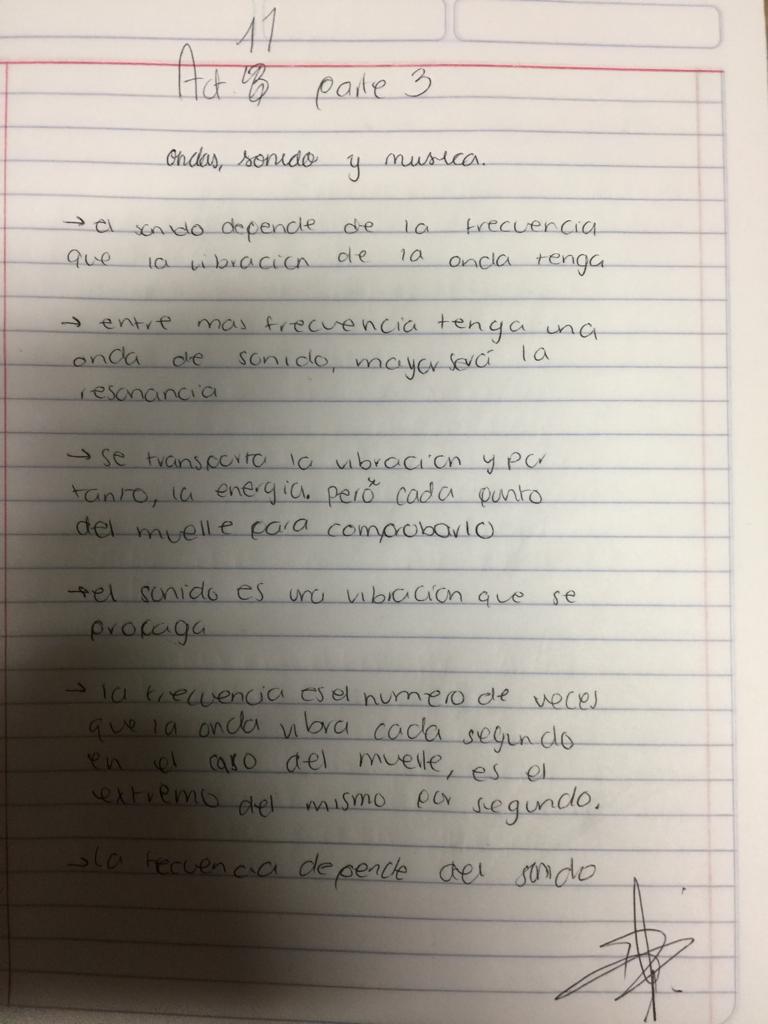 11
Act. parte 3
ondas, sonido y musica.
→ el sonido depende de la frecuencia
que la vibracion de la onda tenga
→ entre mas frecuencia tenga una
onda de sonido, mayor será la
resonancia
→ se transporta la vibracion y por
tanto, la energia. pero cada punto
del muelle para comprobarlo
→ el sonido es una vibracion que se
propaga
→ la frecuencia es el numero de veces
que la onda vibra cada segundo
en el caso del muelle, es el
extremo del mismo por segundo.
→ la fecuencia depende del sonido